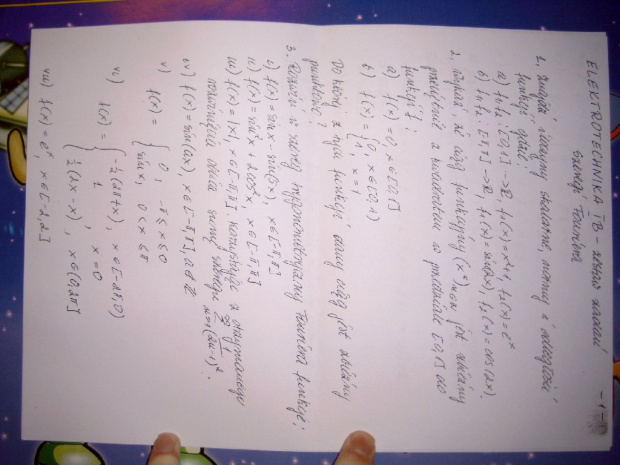 ELEKTROTECHNIKA IB – zestaw zadań – 1 –
szeregi Fouriera
1. Znajdź iloczyny skalarne, normy i odległość
funkcji gdzie:
a) f₁, f₂ : [0,1] → ℝ, f₁(x) = x²+1, f₂(x) = eˣ
b) f₁, f₂ : [-π,π] → ℝ, f₁(x) = sin(2x), f₂(x) = cos(2x).
2. że ciąg funkcyjny (xⁿ) n∈ℕ jest zbieżny
przeciętnie z kwadratem w przedziale [0,1] do
funkcji f:
a) f(x) = 0, x∈[0,1]
b) f(x) = { 0, x∈[0,1)
1, x=1
Do której z tych funkcji dany ciąg jest zbieżny
punktowo?
3. Rozwiń w szereg trygonometryczny Fouriera funkcję:
i) f(x) = sin x - sin(5x), x∈[-π,π]
ii) f(x) = sin²x + 2cos²x, x∈[-π,π]
iii) f(x) = |x|, x∈[-π,π]. Korzystając z otrzymanego
rozwinięcia oblicz sumę szeregu ∞ Σ n=1 1/(2n-1)².
iv) f(x) = sin(ax), x∈[-π,π], a∉ℤ
v) f(x) = { 0, -π ≤ x ≤ 0
sin x, 0 < x ≤ π
vi) f(x) = { -½(2π+x), x∈[-2π,0)
x=0
½(2π-x), x∈(0,2π]
vii) f(x) = eˣ, x∈[-2,2]